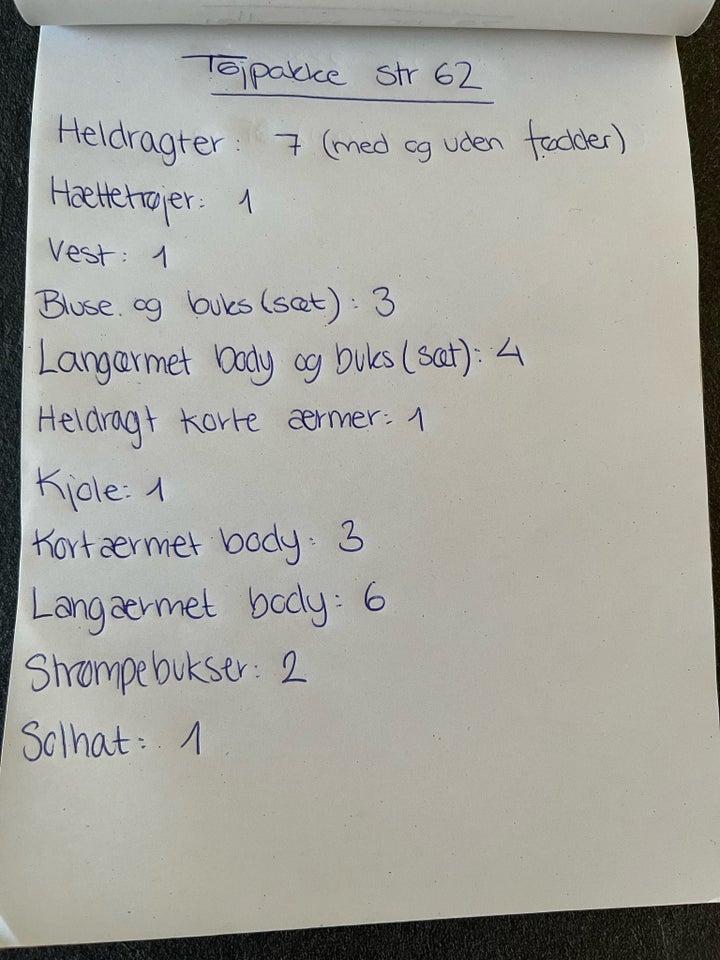 Tøjpakke str 62
Heldragter: 7 (med og uden fødder)
Hættetrøjer: 1
Vest: 1
Bluse og buks (sæt): 3
Langærmet body og buks (sæt): 4
Heldragt korte ærmer: 1
Kjole: 1
Kortærmet body: 3
Langærmet body: 6
Strømpebukser: 2
Solhat: 1